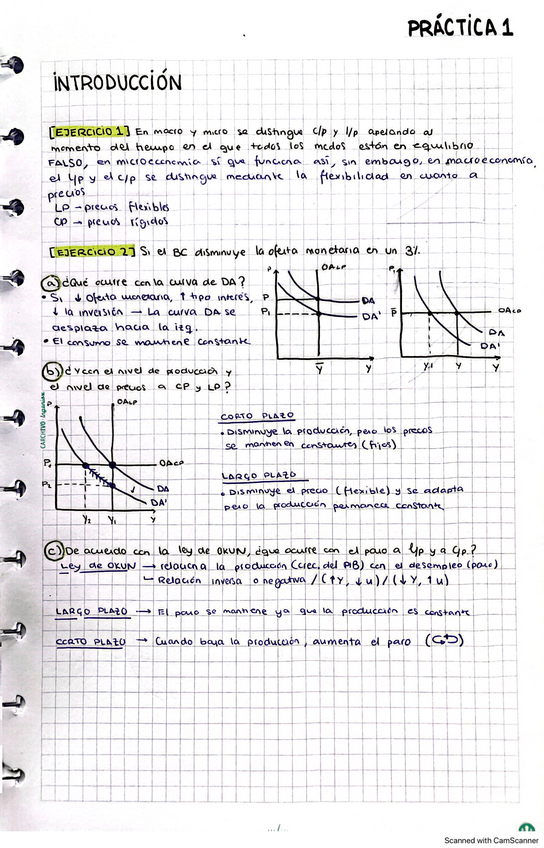 PRÁCTICA 1
INTRODUCCIÓN
[EJERCICIO 1] En macro y micro se distingue c/p y l/p apelando al
momento del tiempo en el que todos los mcdos están en equilibrio.
FALSO, en microeconomía sí que funciona así, sin embargo, en macroeconomía,
el l/p y el c/p se distingue mediante la flexibilidad en cuanto a
precios
LP → precios flexibles
CP → precios rígidos
[EJERCICIO 2] Si el BC disminuye la oferta monetaria en un 3%.
a) ¿Qué ocurre con la curva de DA?
• Si ↓ oferta monetaria, ↑ tipo interés,
↓ la inversión → La curva DA se
desplaza hacia la izq.
• El consumo se mantiene constante
P OALP
P DA
P1 DA'
Y Y
P
P OACP
DA
DA'
Y Y
b) el nivel de producción y
el nivel de precios a CP y LP?
P OALP
OACP
DA
DA'
Y2 Y1 Y
CORTO PLAZO
• Disminuye la producción, pero los precios
se mantienen constantes (fijos)
LARGO PLAZO
• Disminuye el precio (flexible) y se adapta
pero la producción permanece constante
c) De acuerdo con la ley de OKUN, ¿que ocurre con el paro a l/p y a c/p?
Ley de OKUN → relaciona la producción (crec. del PIB) con el desempleo (paro)
↳ Relación inversa o negativa / (↑Y, ↓u) / (↓Y, ↑u)
LARGO PLAZO → El paro se mantiene ya que la producción es constante
CORTO PLAZO → Cuando baja la producción, aumenta el paro
Scanned with CamScanner